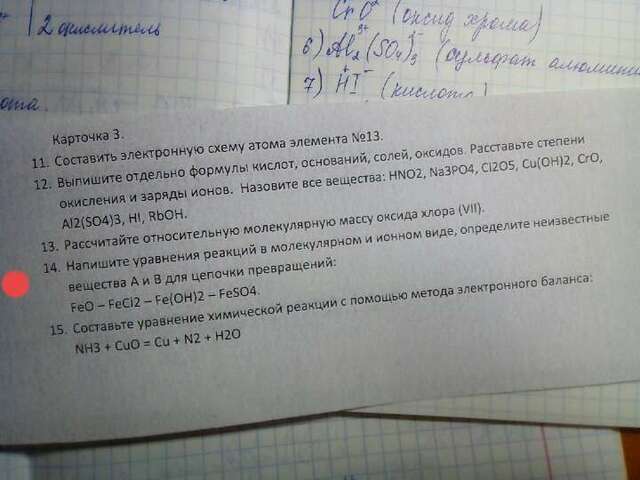 2 окислитель
CrO (оксид хрома)
6) Al₂(SO₄)₃ (сульфат алюмини
7) HI (кислота)
ота.
Карточка 3.
11. Составить электронную схему атома элемента №13.
12. Выпишите отдельно формулы кислот, оснований, солей, оксидов. Расставьте степени
окисления и заряды ионов. Назовите все вещества: HNO2, Na3PO4, Cl2O5, Cu(OH)2, CrO,
Al2(SO4)3, HI, RbOH.
13. Рассчитайте относительную молекулярную массу оксида хлора (VII).
14. Напишите уравнения реакций в молекулярном и ионном виде, определите неизвестные
вещества А и В для цепочки превращений:
FeO – FeCl2 – Fe(OH)2 – FeSO4.
15. Составьте уравнение химической реакции с помощью метода электронного баланса:
NH3 + CuO = Cu + N2 + H2O